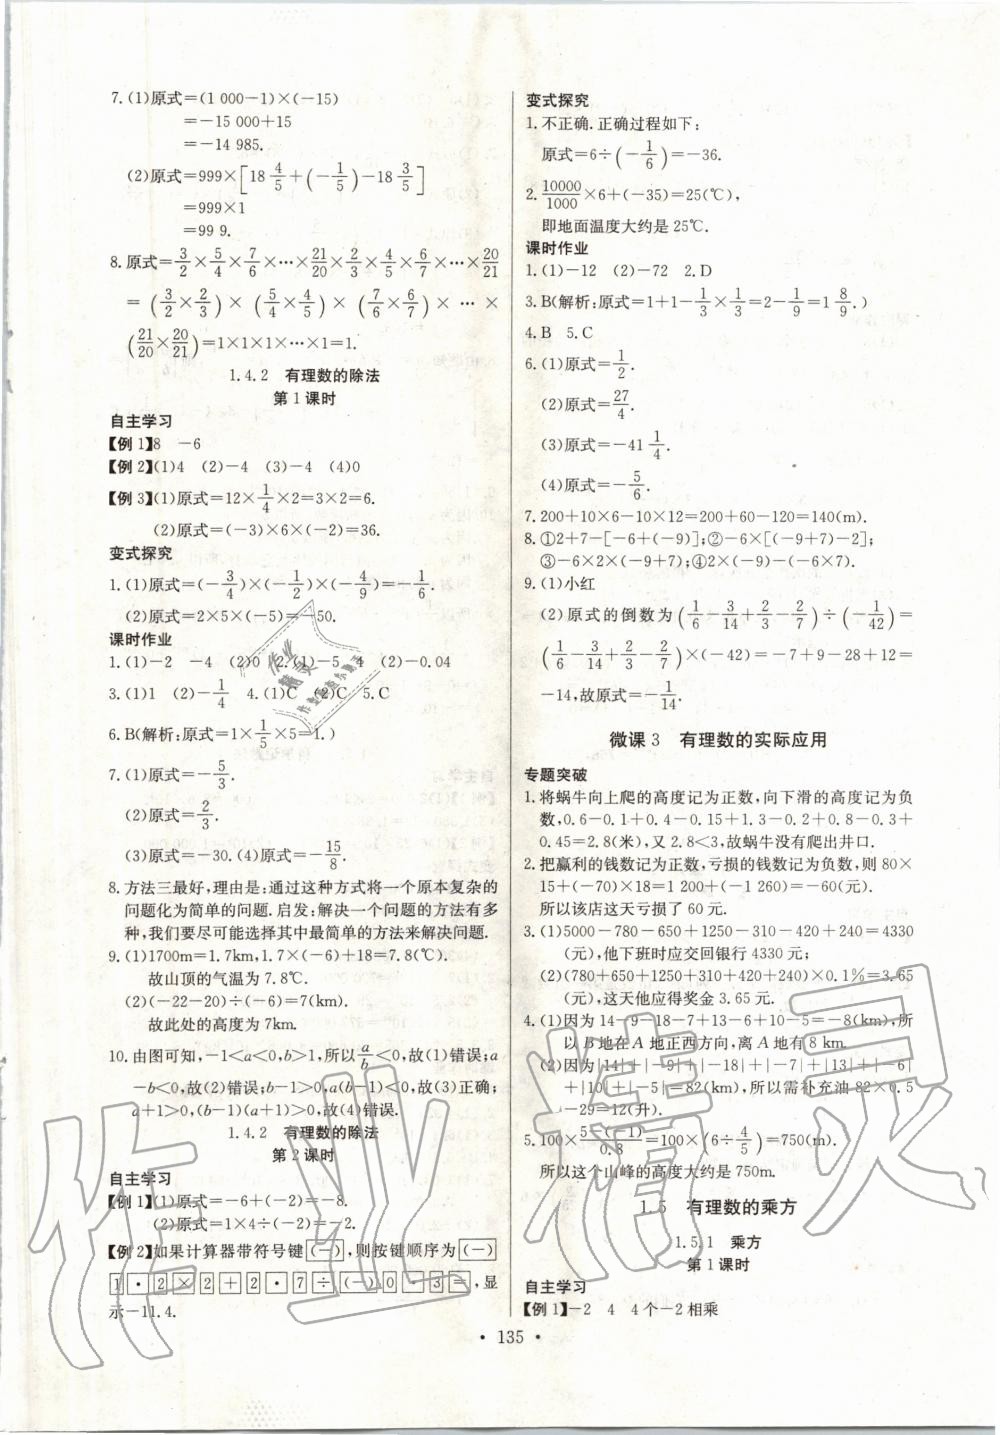 7.(1)原式=(1 000-1)×(-15)
=-15 000+15
=-14 985.
(2)原式=999×[18 4/5+(-1/5)-18 3/5]
=999×1
=99 9.
8.原式=3/2×5/4×7/6×…×21/20×2/3×4/5×6/7×…×20/21
=(3/2×2/3)×(5/4×4/5)×(7/6×6/7)×…×
(21/20×20/21)=1×1×1×…×1=1.
1.4.2 有理数的除法
第1课时
自主学习
【例1】8 -6
【例2】(1)4 (2)-4 (3)-4 (4)0
【例3】(1)原式=12×1/4×2=3×2=6.
(2)原式=(-3)×6×(-2)=36.
变式探究
1.(1)原式=(-3/4)×(-1/2)×(-4/9)=-1/6.
(2)原式=2×5×(-5)=-50.
课时作业
1.(1)-2 -4 (2)0 2.(1)-5 4 (2)-0.04
3.(1)1 (2)-1/4 4.(1)C (2)C 5.C
6.B(解析:原式=1×1/5×5=1.)
7.(1)原式=-5/3.
(2)原式=2/3.
(3)原式=-30.(4)原式=-15/8.
8.方法三最好,理由是:通过这种方式将一个原本复杂的
问题化为简单的问题.启发:解决一个问题的方法有多
种,我们要尽可能选择其中最简单的方法来解决问题.
9.(1)1700m=1.7km,1.7×(-6)+18=7.8(℃).
故山顶的气温为7.8℃.
(2)(-22-20)÷(-6)=7(km).
故此处的高度为7km.
10.由图可知,-1<a<0,b>1,所以a/b<0,故(1)错误;a
-b<0,故(2)错误;b-1>0,a(b-1)<0,故(3)正确;
a+1>0,(b-1)(a+1)>0,故(4)错误.
1.4.2 有理数的除法
第2课时
自主学习
【例1】(1)原式=-6+(-2)=-8.
(2)原式=1×4÷(-2)=-2.
【例2】如果计算器带符号键(-),则按键顺序为(-)
1·2×2+2·7÷(-)0·3=,显
示-11.4.
变式探究
1.不正确.正确过程如下:
原式=6÷(-1/6)=-36.
2.10000/1000×6+(-35)=25(℃),
即地面温度大约是25℃.
课时作业
1.(1)-12 (2)-72 2.D
3.B(解析:原式=1+1-1/3×1/3=2-1/9=1 8/9.)
4.B 5.C
6.(1)原式=1/2.
(2)原式=27/4.
(3)原式=-41 1/4.
(4)原式=-5/6.
7.200+10×6-10×12=200+60-120=140(m).
8.①2+7-[-6+(-9)];②-6×[(-9+7)-2];
③-6×2×(-9+7);④2×(-9)-(-6×7).
9.(1)小红
(2)原式的倒数为(1/6-3/14+2/3-2/7)÷(-1/42)=
(1/6-3/14+2/3-2/7)×(-42)=-7+9-28+12=
-14,故原式=-1/14.
微课3 有理数的实际应用
专题突破
1.将蜗牛向上爬的高度记为正数,向下滑的高度记为负
数,0.6-0.1+0.4-0.15+1.3-0.2+0.8-0.3+
0.45=2.8(米),又2.8<3,故蜗牛没有爬出井口.
2.把赢利的钱数记为正数,亏损的钱数记为负数,则80×
15+(-70)×18=1 200+(-1 260)=-60(元).
所以该店这天亏损了60元.
3.(1)5000-780-650+1250-310-420+240=4330
(元),他下班时应交回银行4330元.
(2)(780+650+1250+310+420+240)×0.1%=3.65
(元),这天他应得奖金3.65元.
4.(1)因为14-9-18-7+13-6+10-5=-8(km),所
以B地在A地正西方向,离A地有8 km.
(2)因为|14|+|-9|+|-18|+|-7|+|13|+|-6|
+|10|+|-5|=82(km),所以需补充油82×0.5
-29=12(升).
5.100×5-(-1)/0.8=100×(6÷4/5)=750(m).
所以这个山峰的高度大约是750m.
1.5 有理数的乘方
1.5.1 乘方
第1课时
自主学习
【例1】-2 4 4个-2相乘
·135·
作业精灵